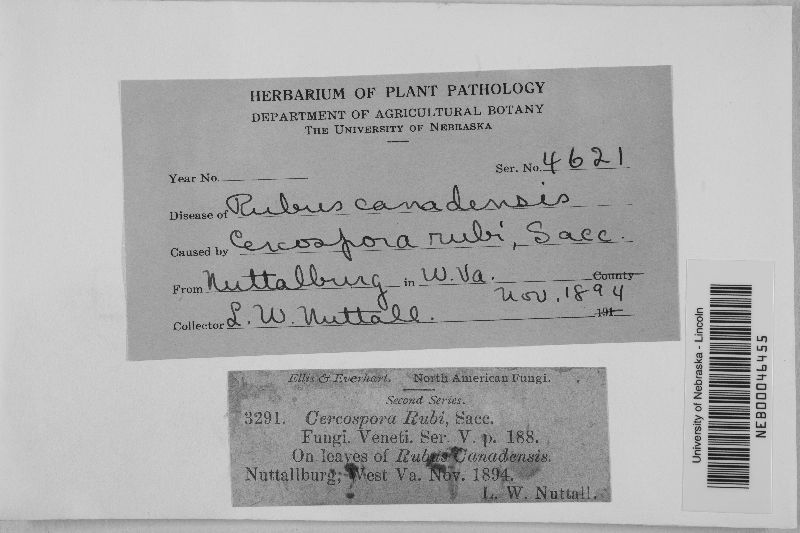 HERBARIUM OF PLANT PATHOLOGY
DEPARTMENT OF AGRICULTURAL BOTANY
THE UNIVERSITY OF NEBRASKA
Year No. Ser. No. 4621
Disease of Rubus canadensis
Caused by Cercospora rubi, Sacc.
From Nuttalburg in W. Va. County
Nov. 1894
Collector L. W. Nuttall. 191
Ellis & Everhart. North American Fungi.
Second Series.
3291. Cercospora Rubi, Sacc.
Fungi. Veneti. Ser. V. p. 188.
On leaves of Rubus Canadensis.
Nuttallburg; West Va. Nov. 1894.
L. W. Nuttall.
University of Nebraska - Lincoln
NEB00046455